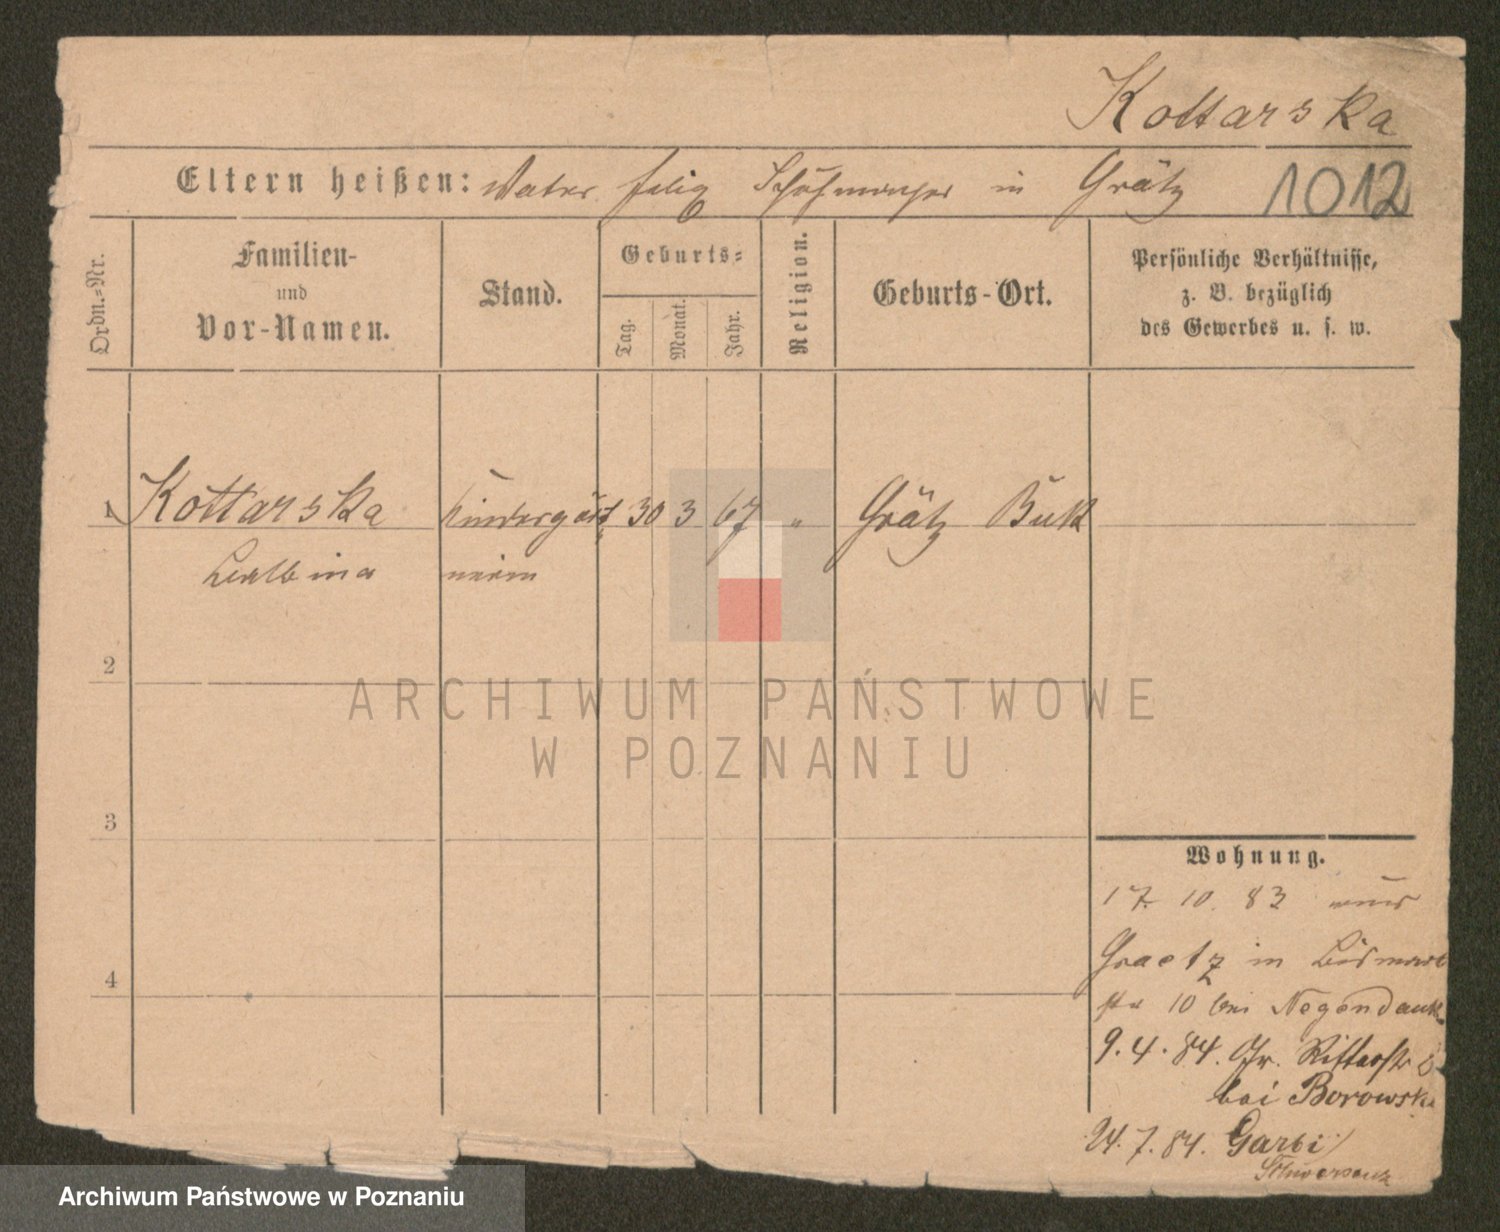 Kottarska
Eltern heißen: Vater Felix Schuhmacher in Grätz 1012
Ordn.-Nr.
Familien-
und
Vor-Namen.
Stand.
Geburts-
Tag.
Monat.
Jahr.
Religion.
Geburts-Ort.
Persönliche Verhältnisse,
z. B. bezüglich
des Gewerbes u. s. w.
1 Kottarska Kindergärt 30 3 67 " Grätz Buk
Balbina nerin
2
ARCHIWUM PAŃSTWOWE
W POZNANIU
3
4
Wohnung.
17. 10. 83 aus
Graetz in Bismark
str 10 bei Negendank
9. 4. 84. Gr. Ritterstr
bei Borowski
24. 7. 84. Garbi
Archiwum Państwowe w Poznaniu